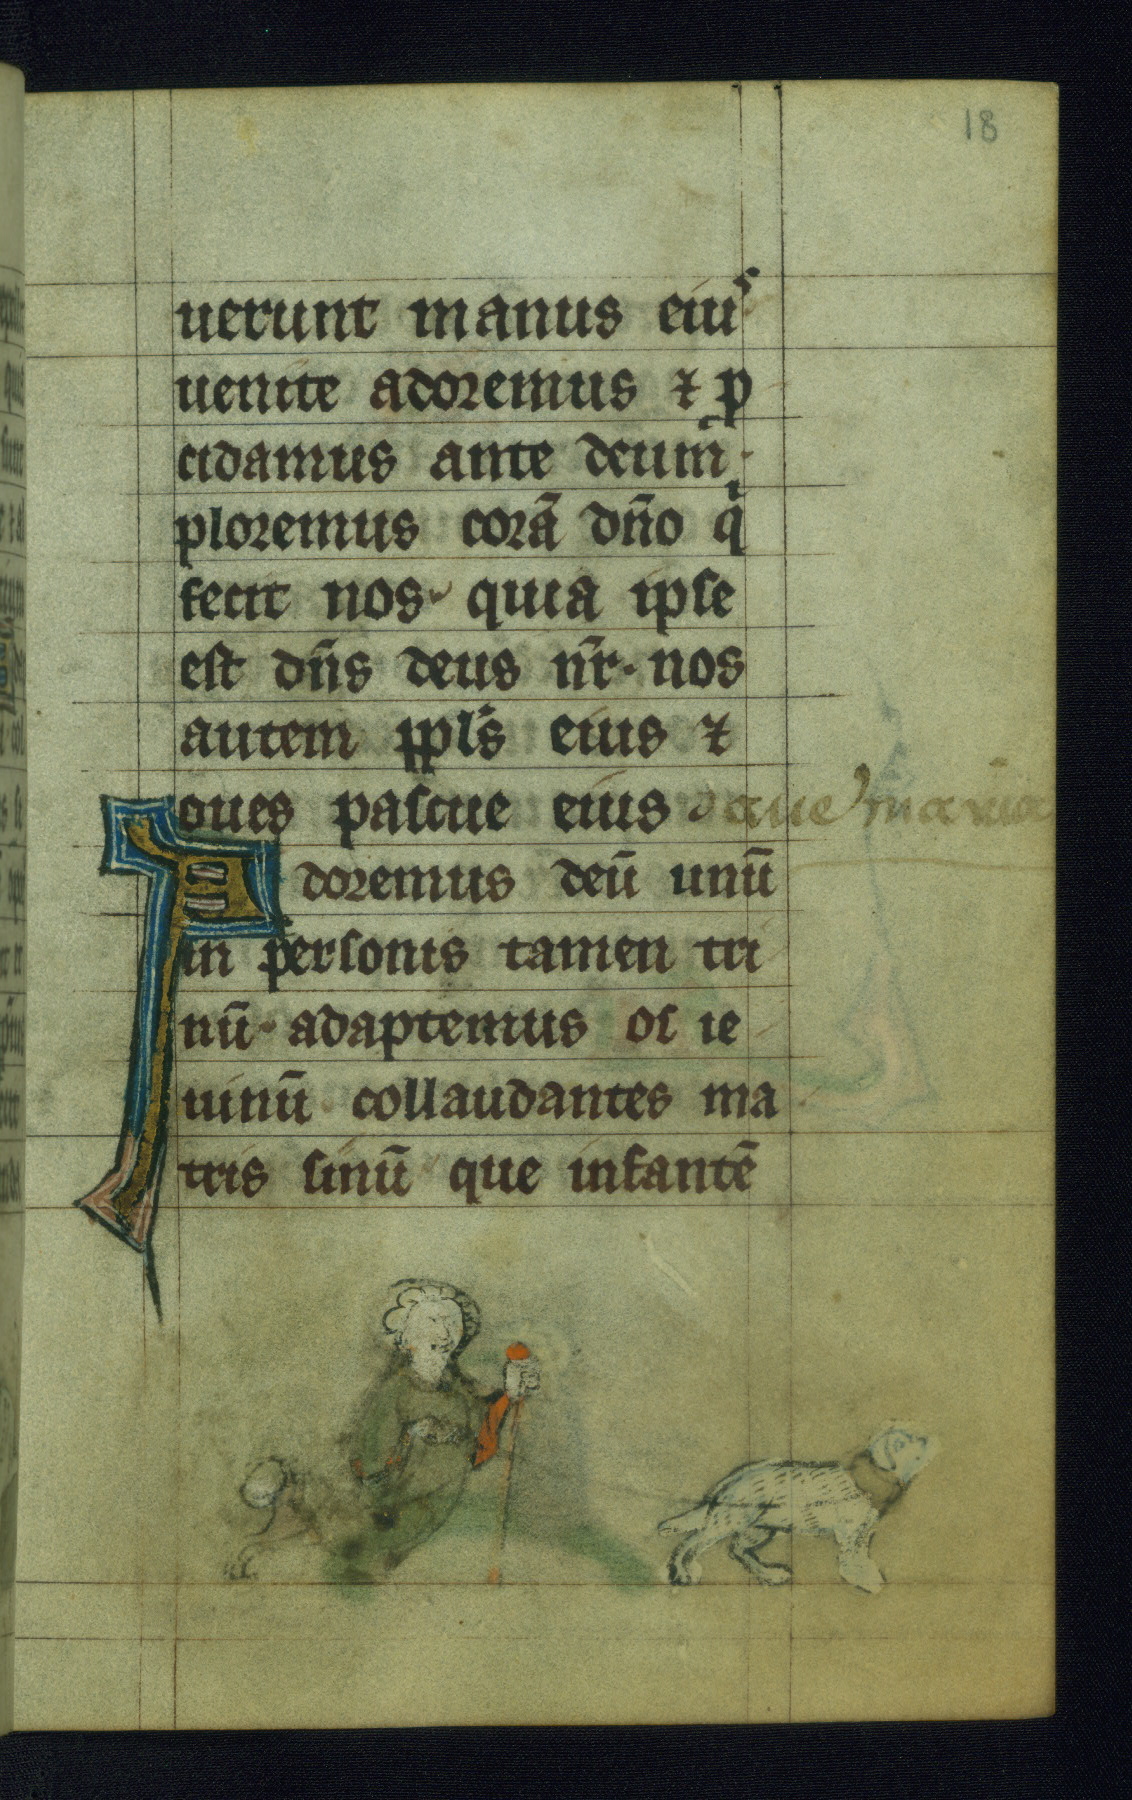 18
uerunt manus eiuˢ
uenite adoremus ⁊ p
cidamus ante deum̃.
ploremus corã dño q̇
fecit nos. quia ipse
est dñs deus nr̃. nos
autem ppl̃s eius ⁊
oues pascue eius d aue maria
Adoremus deũ unũ
in personis tamen tri
nũ. adaptemus os ie
iunũ collaudantes ma
tris sinũ que infantẽ